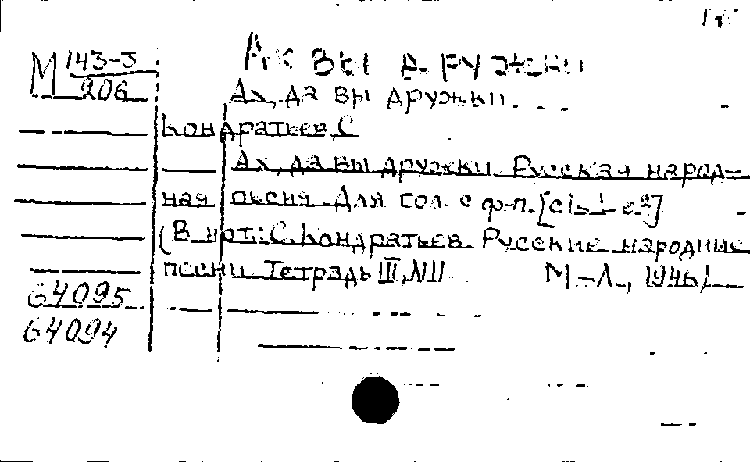 М 143-3
206
Ах вы дружки
Ах, да вы дружки.
Кондратьев, С
Ах, да вы дружки. Русская народ-
ная песня. Для гол. с ф-п.
(В нот.: С. Кондратьев. Русские народные
песни. Тетрадь III, N11 М-Л., 1946)
64095
64094